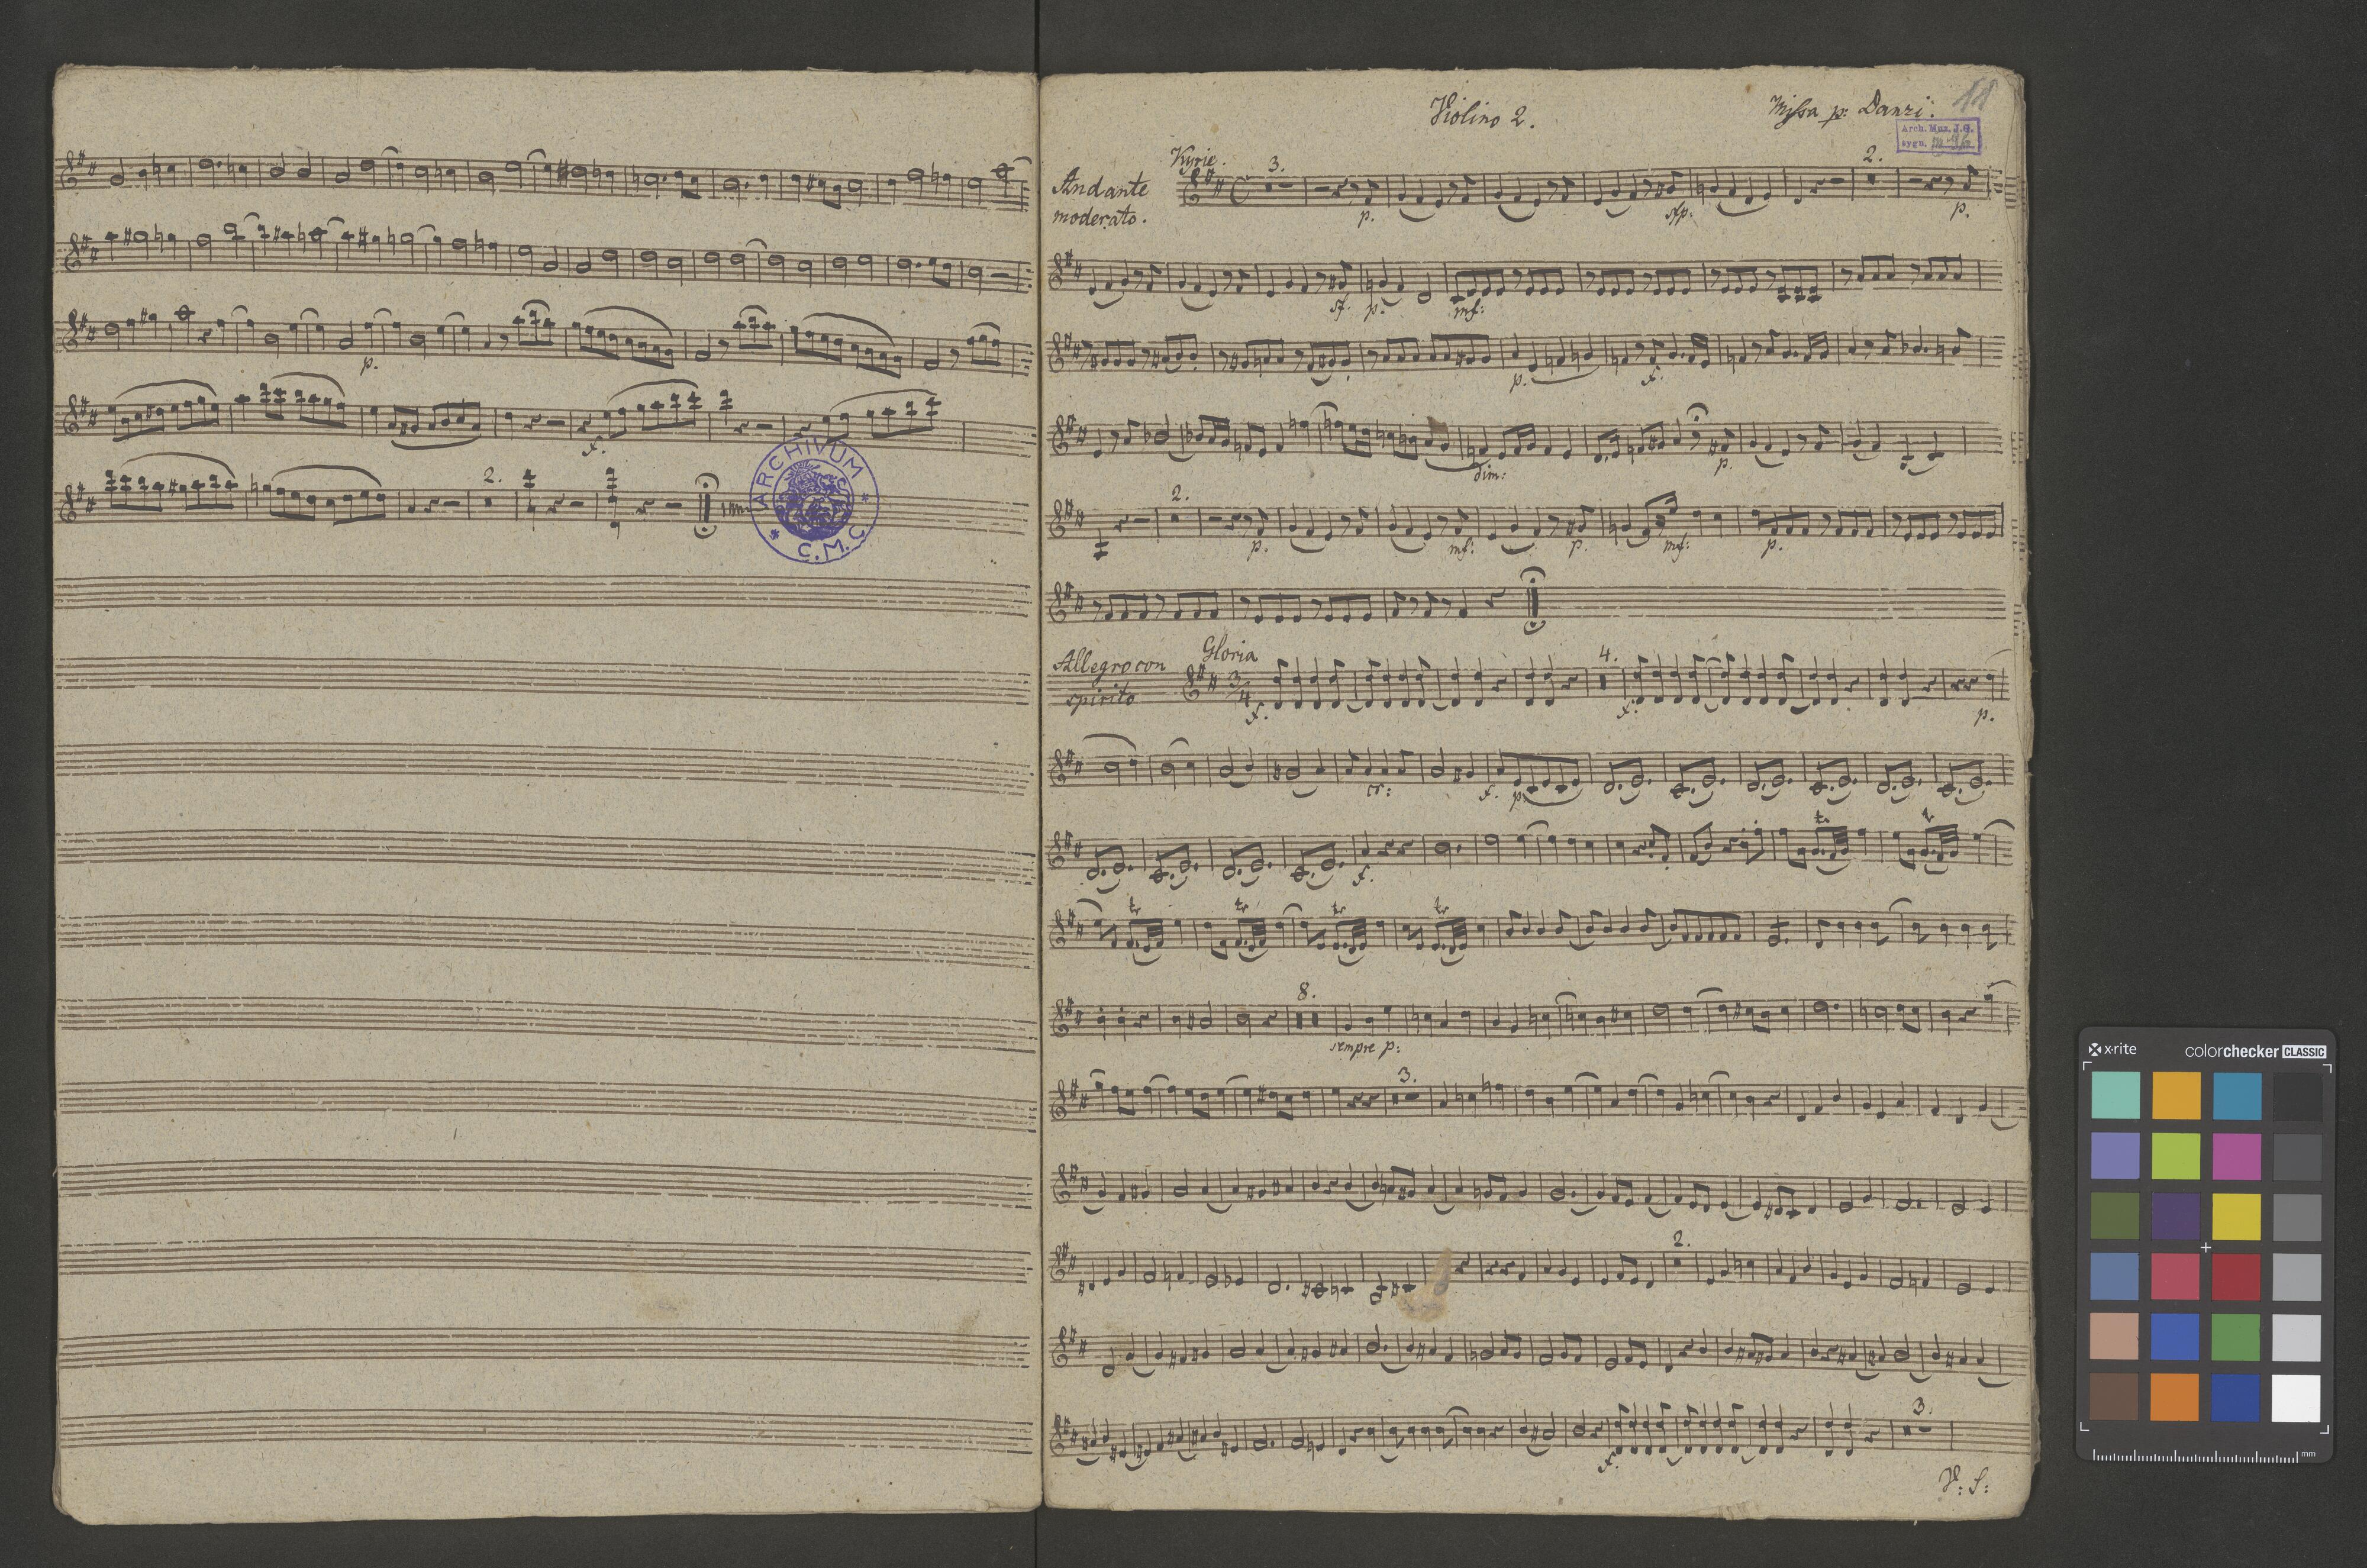 p.
f.
2.
ARCHIVUM
* C.M.C *
Violino 2.
Missa p: Danzi.
11
Arch. Muz. J.G.
sygn.
Kyrie.
Andante
moderato.
3.
2.
p.
sfp.
p.
sf.
p.
mf:
p.
f.
dim:
p.
2.
p.
mf:
p.
mf:
p.
Allegro con
spirito
Gloria
3/4
4.
f.
f.
p.
cr:
f.
p.
f.
tr
tr
tr
tr
tr
tr
8.
sempre p:
3.
2.
3.
f.
V: S:
x-rite
colorchecker CLASSIC
mm